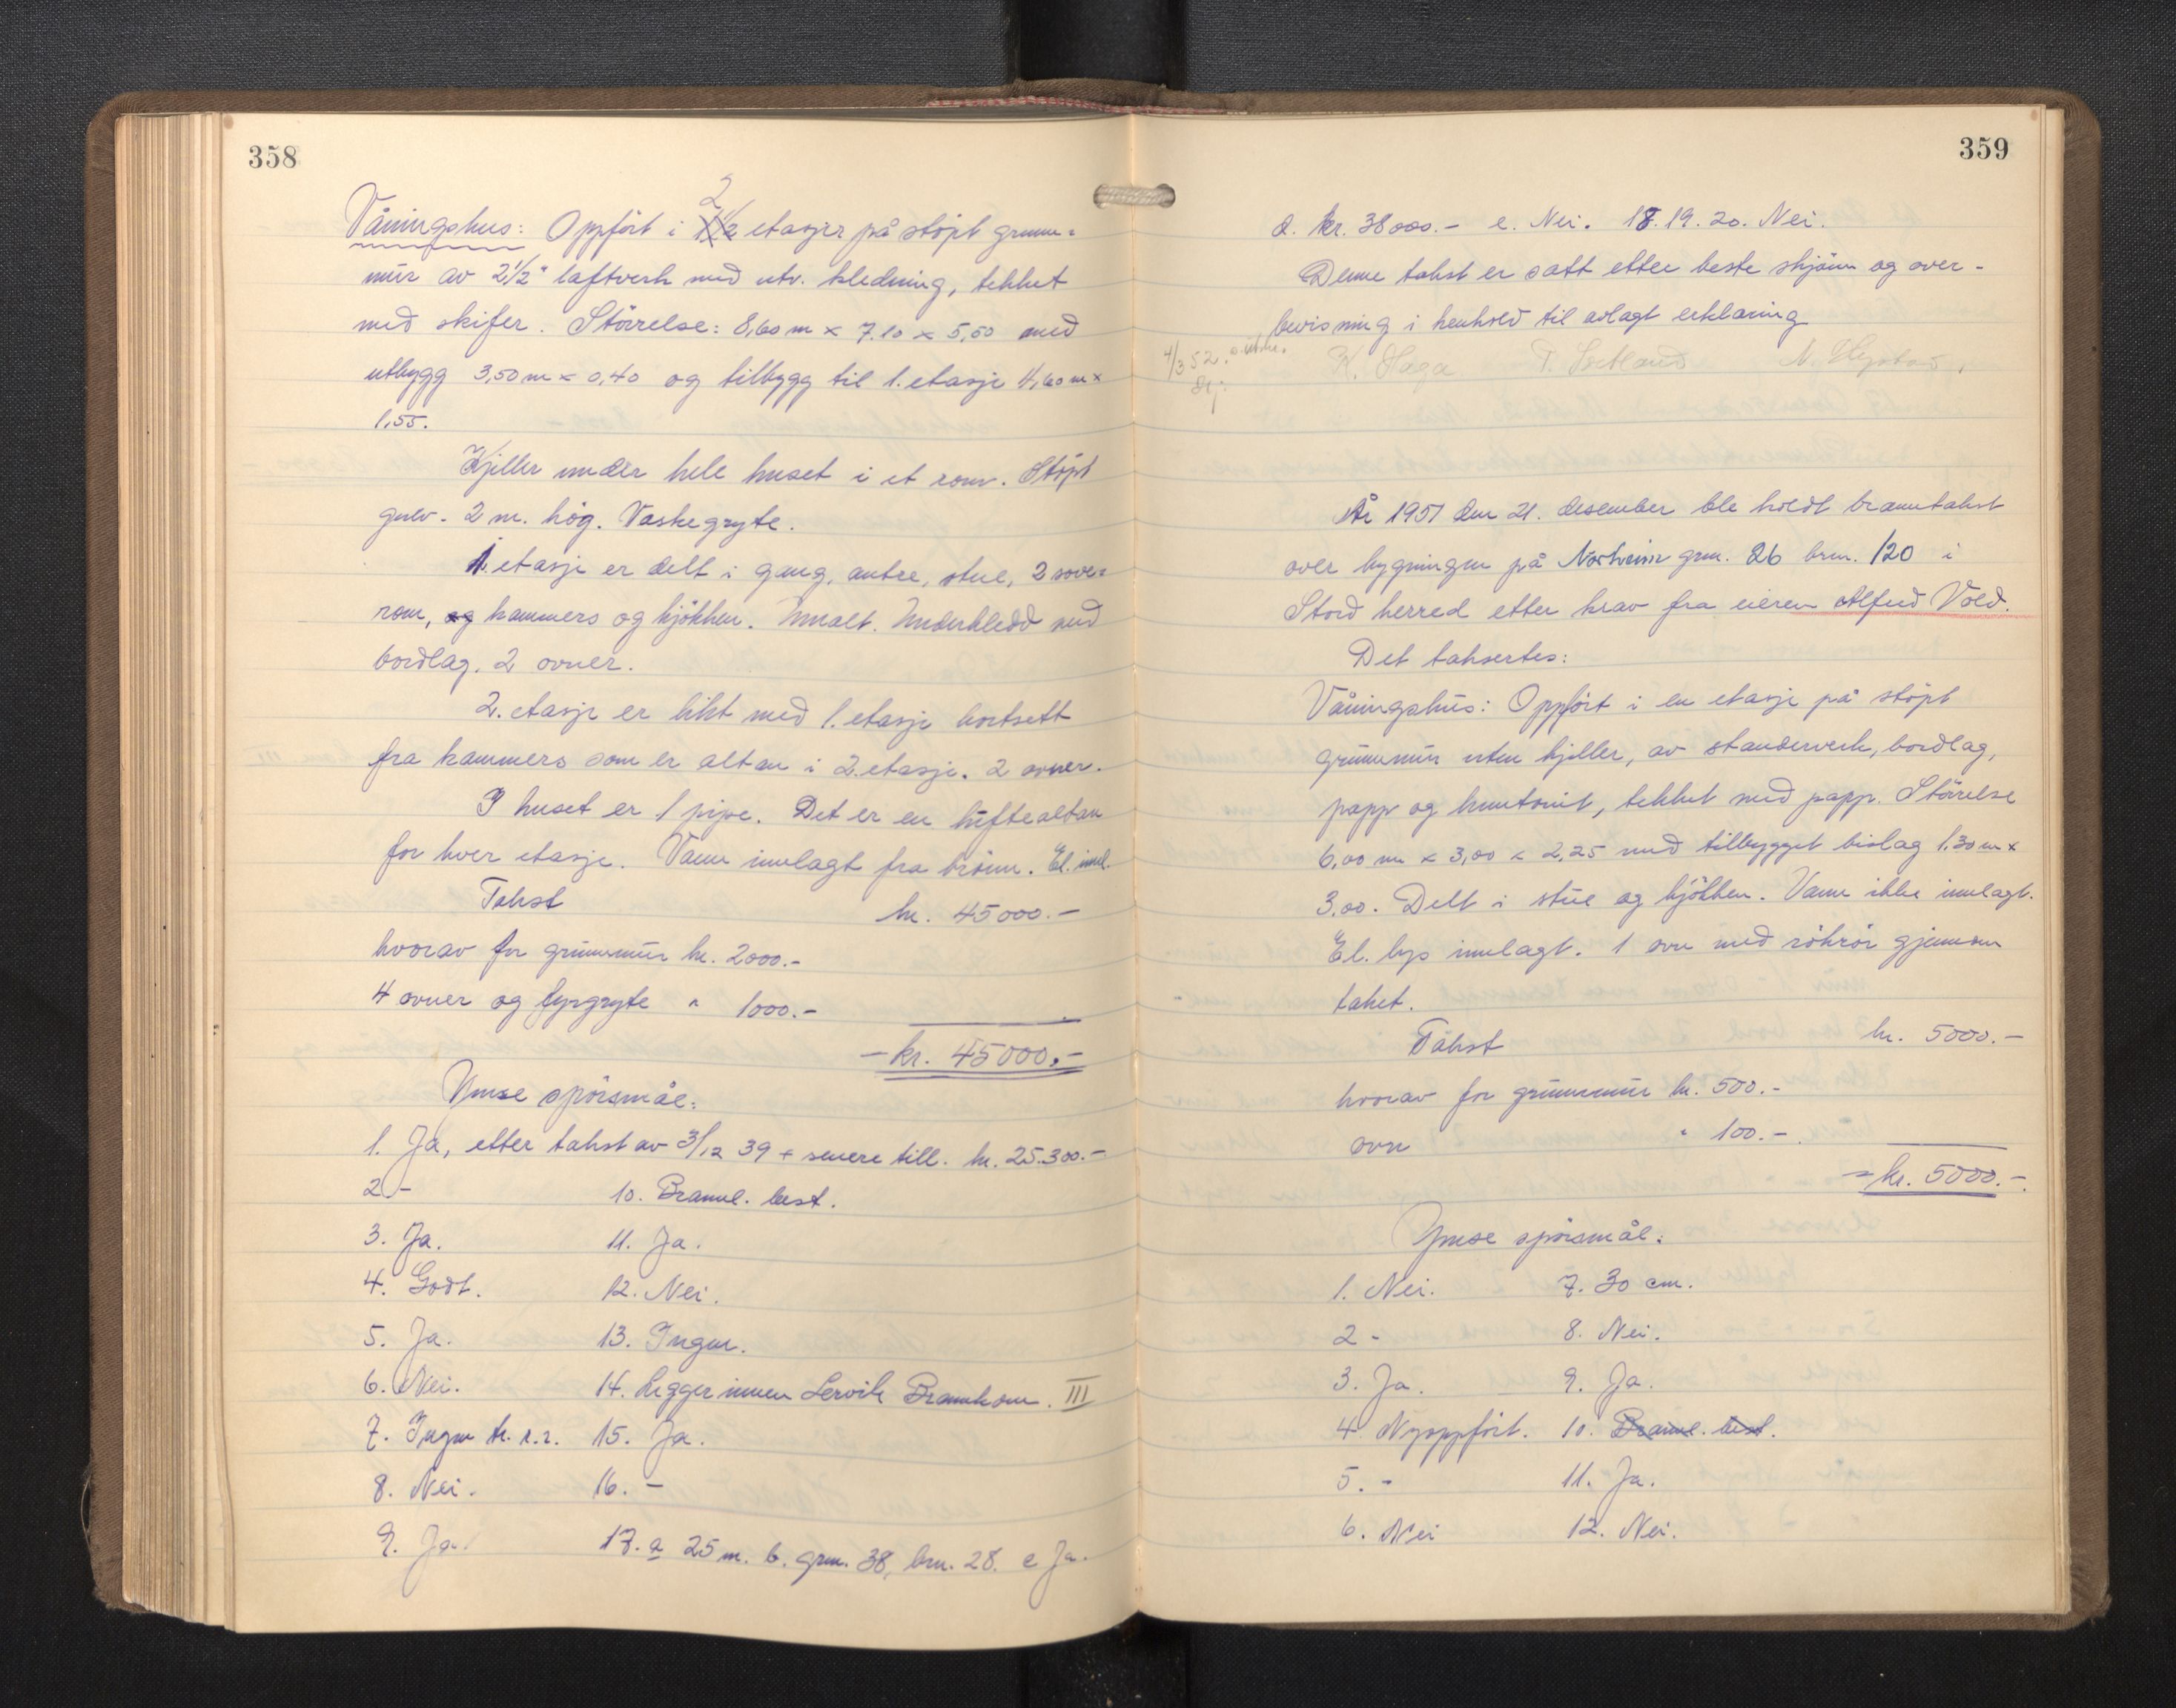 358
Våningshus: Oppført i 2 1 1/2 etasjer på støpt grunn-
mur av 2 1/2" laftverk med utv. kledning, tekket
med skifer. Størrelse: 8,60 m x 7.10 x 5,50 med
utbygg 3,50 m x 0,40 og tilbygg til 1. etasje 4,60 m x
1,55.
Kjeller under hele huset i et rom. Støpt
gulv. 2 m. høg. Vaskegryte.
1. etasje er delt i gang, entre, stue, 2 sove-
rom, og kammers og kjøkken. Inmalt. Underkledd med
bordlag. 2 ovner.
2. etasje er likt med 1. etasje bortsett
fra kammers som er altan i 2. etasje. 2 ovner.
I huset er 1 pipe. Det er en luftealtan
for hver etasje. Vann innlagt fra brønn. El. innl.
Takst kr. 45000.-
hvorav for grunnmur kr. 2000.-
4 ovner og fyrgryte " 1000.-
- kr. 45000.-
Ymse spørsmål:
1. Ja, etter takst av 3/12 39 + senere till. kr. 25.300.-
2 - 10. Brannl. best.
3. Ja. 11. Ja.
4. Godt. 12. Nei.
5. Ja. 13. Ingen.
6. Nei. 14. Ligger innen Lervik Brannkom. III
7. Ingen 15. Ja.
8. Nei. 16. -
9. Ja. 17. a 25 m. b. grn. 38, brn. 28. c Ja.
359
d. kr. 38000.- e. Nei. 18. 19. 20. Nei.
Denne takst er satt etter beste skjønn og over-
bevisning i henhold til avlagt erklæring
4/3 52. K. Haga T. Sætland N. Hystad.
År 1951 den 21. desember ble holdt branntakst
over bygningen på Nortveim grn. 26 brn. 120 i
Stord herred etter krav fra eieren Alfred Vold.
Det takseres:
Våningshus: Oppført i en etasje på støpt
grunnmur uten kjeller, av standerverk, bordlag,
papp og huntonit, tekket med papp. Størrelse
6,00 m x 3,00 x 2,25 med tilbygget bislag 1.30 m x
3,00. Delt i stue og kjøkken. Vann ikke innlagt.
El. lys innlagt. 1 ovn med rökrör gjennom
taket.
Takst kr. 5000.-
hvorav for grunnmur kr. 500.-
ovn " 100.-
- kr. 5000.-
Ymse spørsmål:
1. Nei. 7. 30 cm.
2 - 8. Nei.
3. Ja. 9. Ja.
4. Nyoppført. 10. Brannl. best.
5. - 11. Ja.
6. Nei 12. Nei.